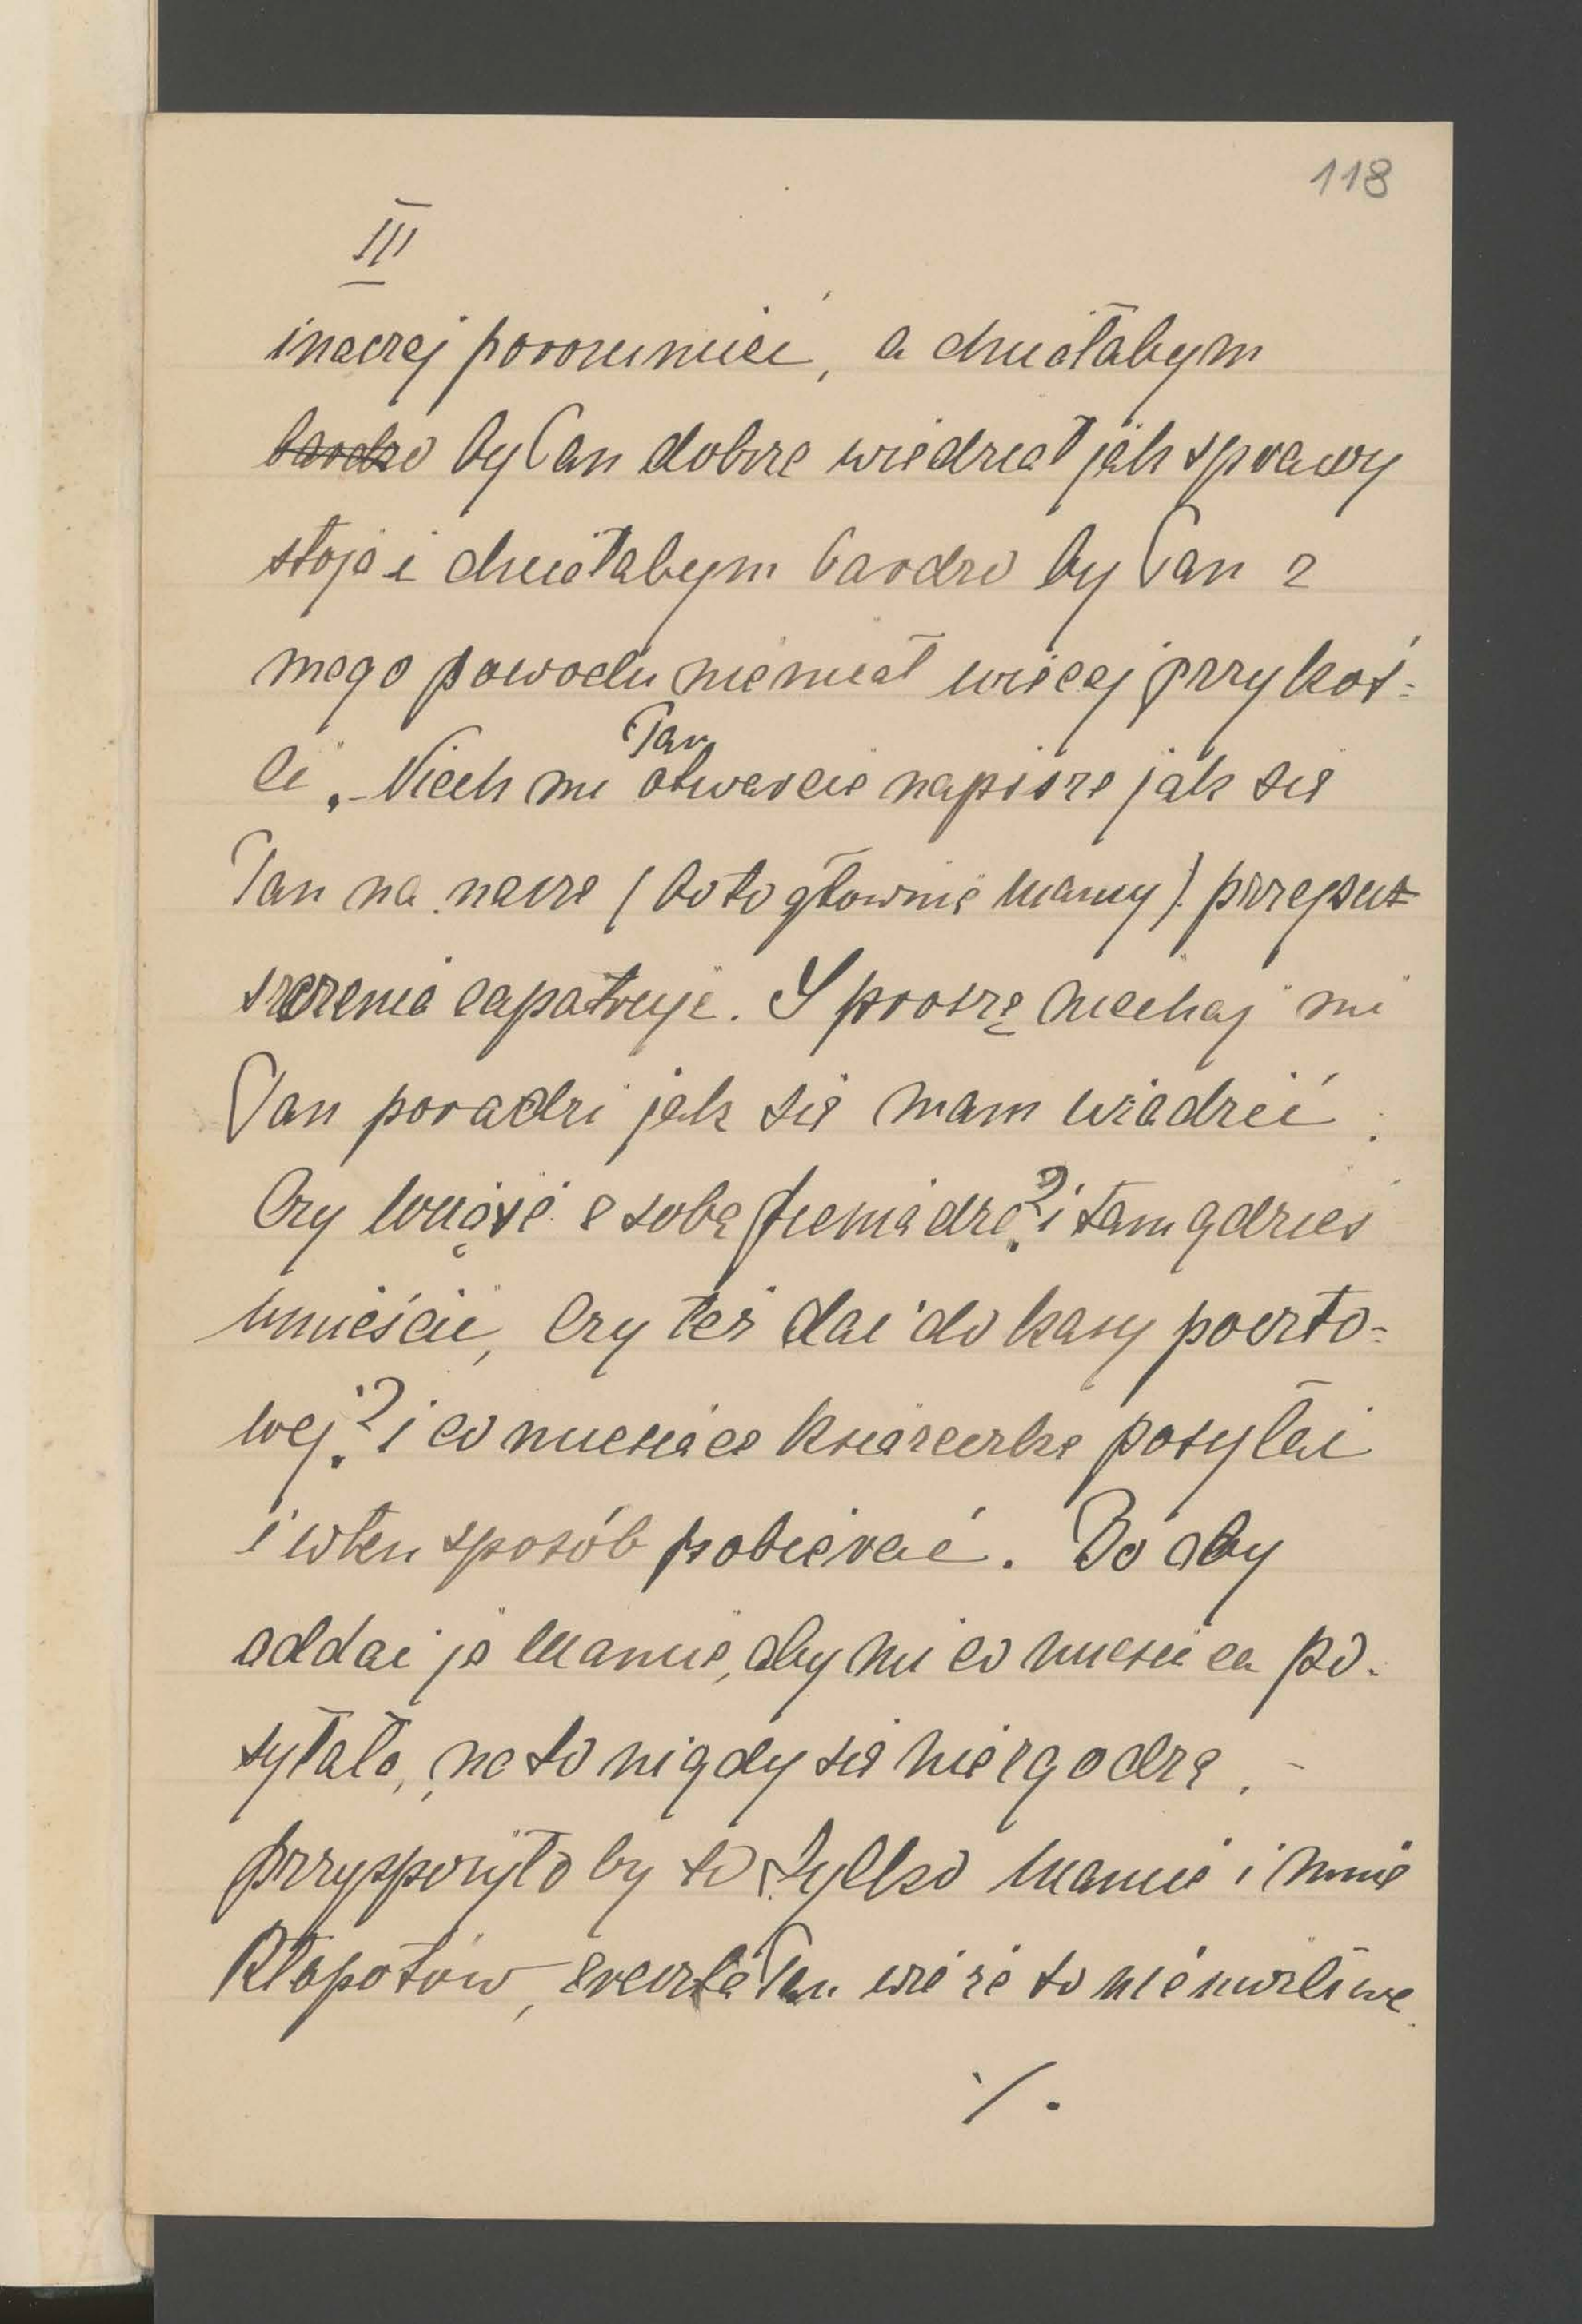 118
III
inaczej porozumieć, a chciałabym
bardzo by Pan dobrze wiedział jak sprawy
stoją i chciałabym bardzo by Pan z
mego powodu niemiał więcej przykoś=
ci. – Niech mi Pan otwarcie napisze jak się
Pan na nasze (bo to głownie mamy) przepusz
szczenia zapatruje. I proszę niechaj mi
Pan poradzi jak się mam wiadzić.
Czy wziąść z sobą pieniądze? i tam gdzieś
umieścić, czy też dać do kasy poczto=
wej? i co miesiąc książeczkę posyłać
i wten sposób pobierać. Bo aby
oddać ją mamie, aby mi co miesiąca po-
syłała, na to nigdy się niezgodzę. –
przysporzyło by to tylko mamie i mnie
kłopotów, zresztą Pan wie że to niemożliwe.
./.